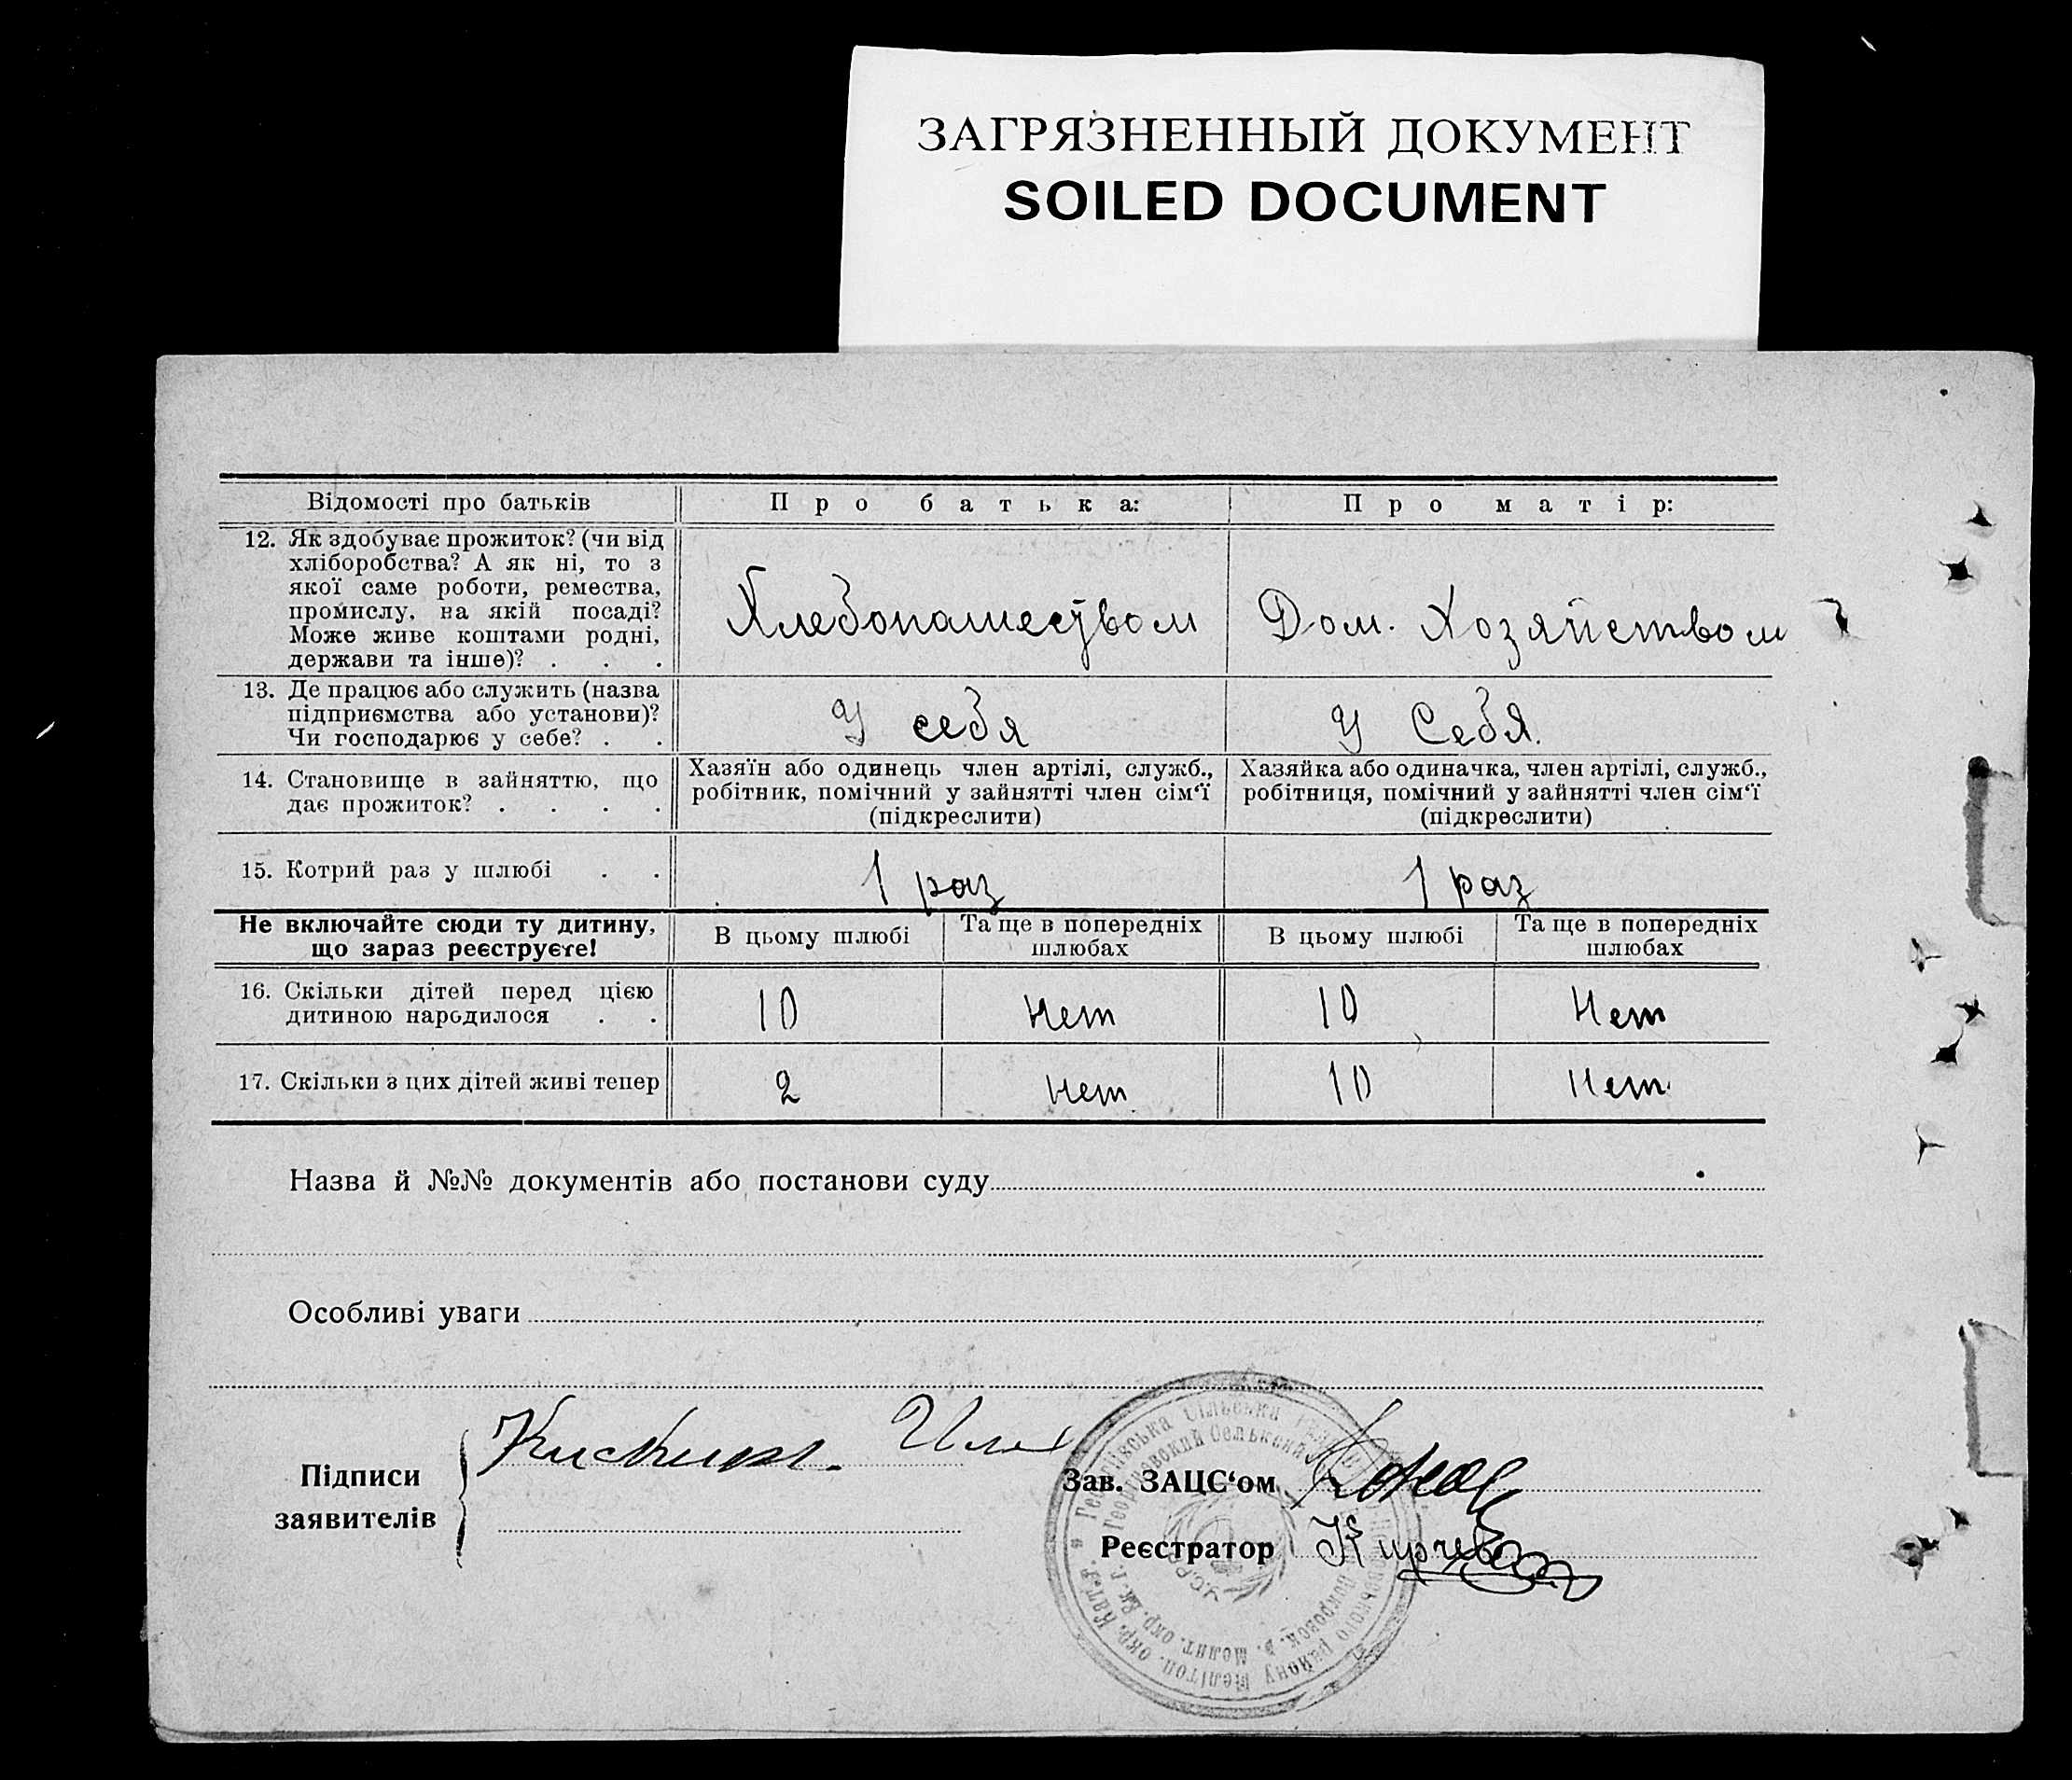 ЗАГРЯЗНЕННЫЙ ДОКУМЕНТ
SOILED DOCUMENT
Відомості про батьків
Про батька:
Про матір:
12. Як здобуває прожиток? (чи від
хліборобства? А як ні, то з
якої саме роботи, ремества,
промислу, на якій посаді?
Може живе коштами родні,
держави та інше)? . . .
Хлебопашеством
Дом. Хозяйством
13. Де працює або служить (назва
підприємства або установи)?
Чи господарює у себе? . .
У себя
У Себя.
14. Становище в зайняттю, що
дає прожиток? . . . .
Хазяїн або одинець член артілі, служб.,
робітник, помічний у зайнятті член сім‘ї
(підкреслити)
Хазяйка або одиначка, член артілі, служб.,
робітниця, помічний у зайнятті член сім‘ї
(підкреслити)
15. Котрий раз у шлюбі . .
1 раз
1 раз
Не включайте сюди ту дитину,
що зараз реєструєте!
В цьому шлюбі
Та ще в попередніх
шлюбах
В цьому шлюбі
Та ще в попередніх
шлюбах
16. Скільки дітей перед цією
дитиною народилося . .
10
Нет
10
Нет
17. Скільки з цих дітей живі тепер
2
Нет
10
Нет
Назва й №№ документів або постанови суду
Особливі уваги
Підписи
заявителів
Зав. ЗАЦС‘ом
Реєстратор